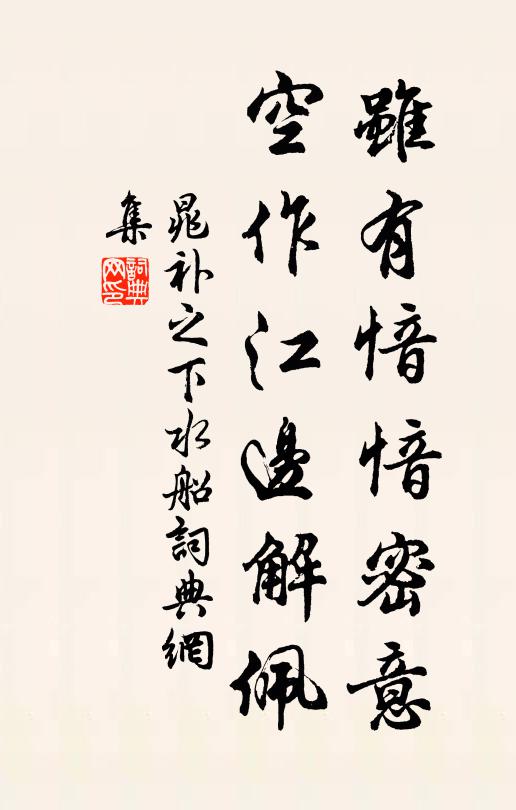 雖有愔愔密意
空作江邊解佩
晁补之下水船詞典網
集
詞典网印